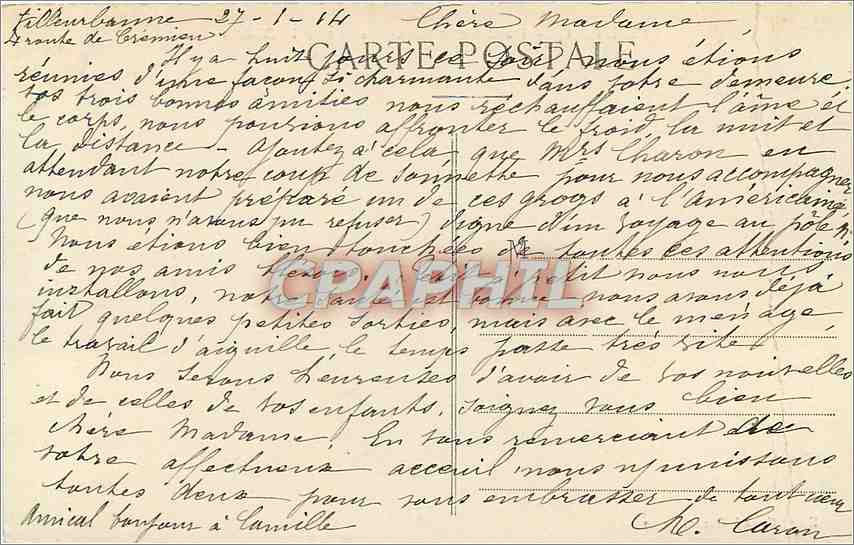 Villeurbanne 27-1-14 Chère Madame,
4 route de Crémieu
CARTE POSTALE
Il y a huit jours ce soir nous étions
réunies d'une façon si charmante dans votre demeure.
vos trois bonnes amitiés nous réchauffaient l'âme et
le corps, nous pouvions affronter le froid, la nuit et
la distance - Ajoutez à cela que Mrs Charon en
attendant notre coup de sonnette pour nous accompagner
nous avaient préparé un de ces grogs à l'Américaine
(que nous n'avons pu refuser) digne d'un voyage au pôle N.
Nous étions bien touchées de toutes ces attentions
de nos amis
CPAPHIL
petit nous nous
installons, notre santé est bonne, nous avons déjà
fait quelques petites sorties, mais avec le ménage,
le travail d'aiguille, le temps passe très vite.
Nous serons heureuses d'avoir de vos nouvelles
et de celles de vos enfants. Soignez vous bien
chère Madame. En vous remerciant de
votre affectueux acceuil, nous nous unissons
toutes deux pour vous embrasser de tout cœur
Amical bonjour à Camille
M. Caron